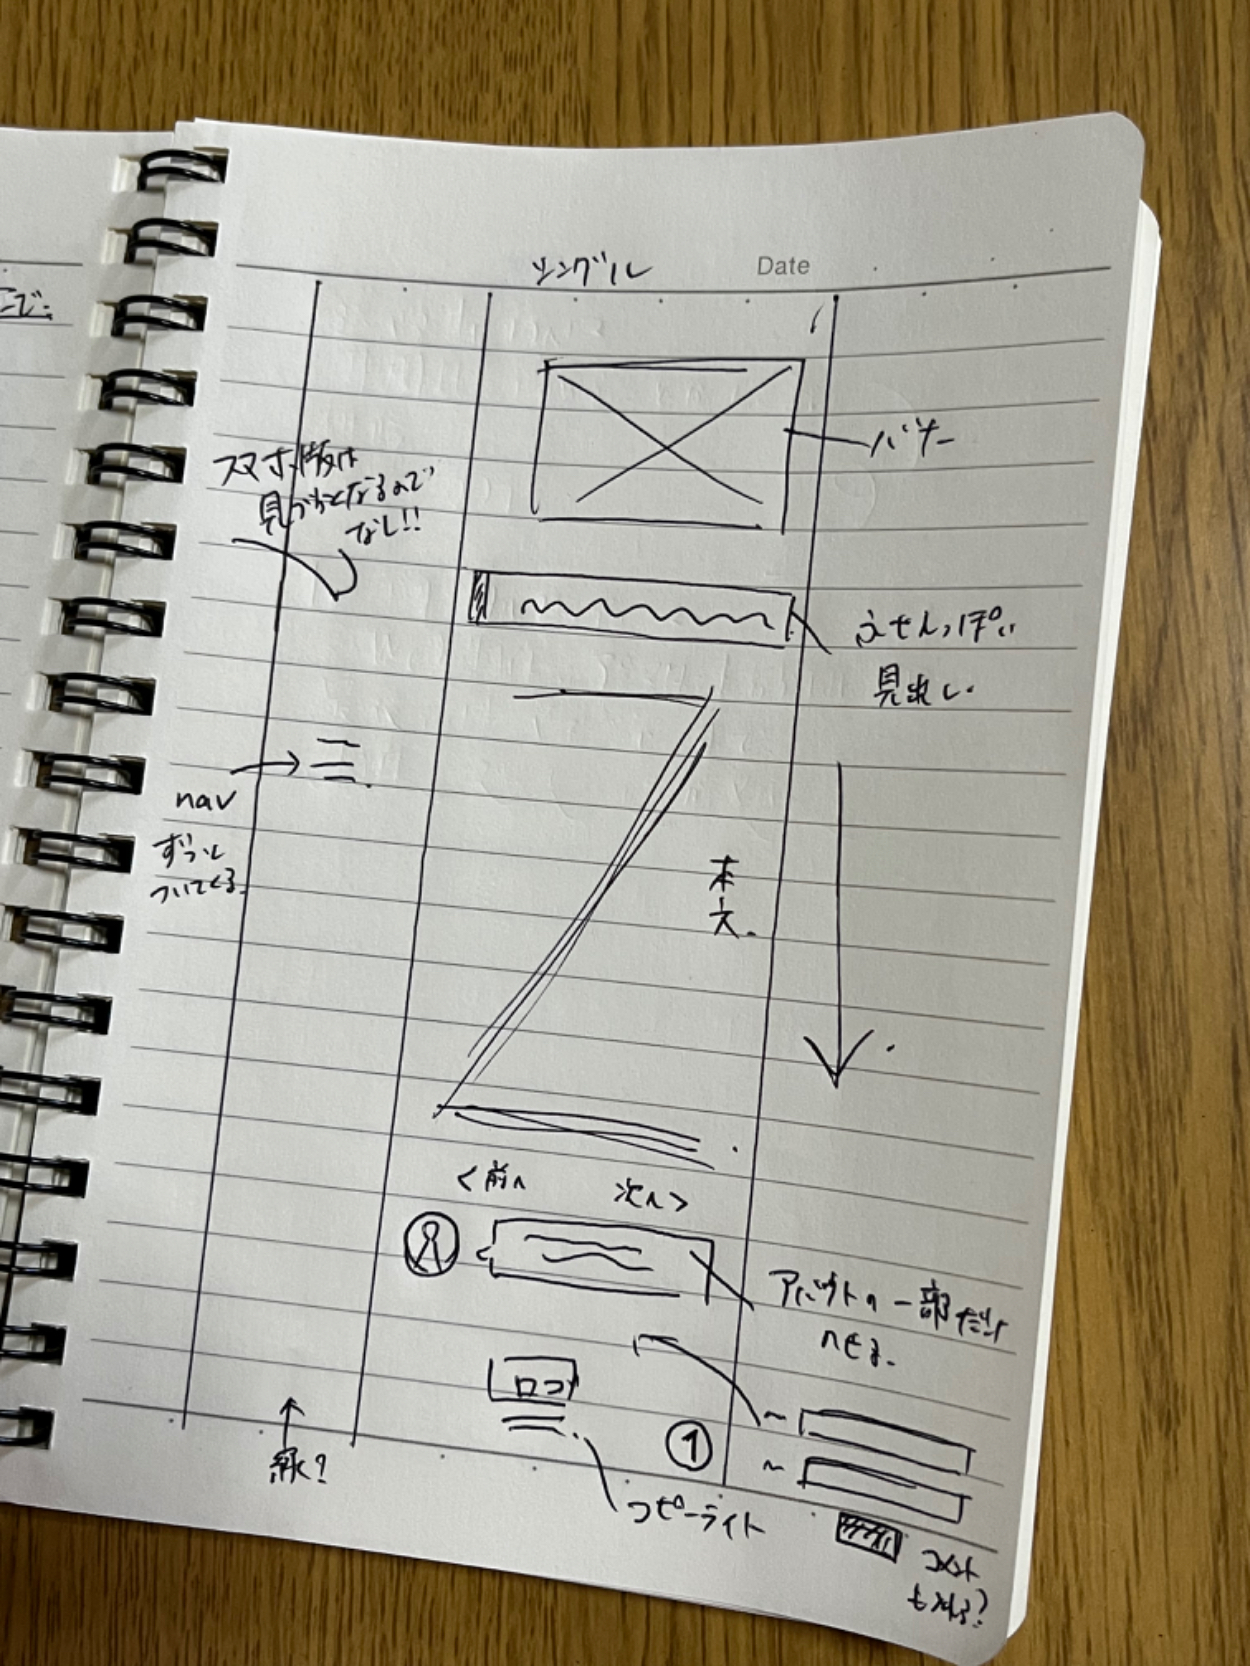 シングル
Date
バナー
スマホ版は
見づらくなるので
なし!!
ふせんっぽい
見出し
nav
ずっと
ついてくる
本
文
<前へ
次へ>
アバウトの一部だけ
のせる
ロゴ
コピーライト
コメント